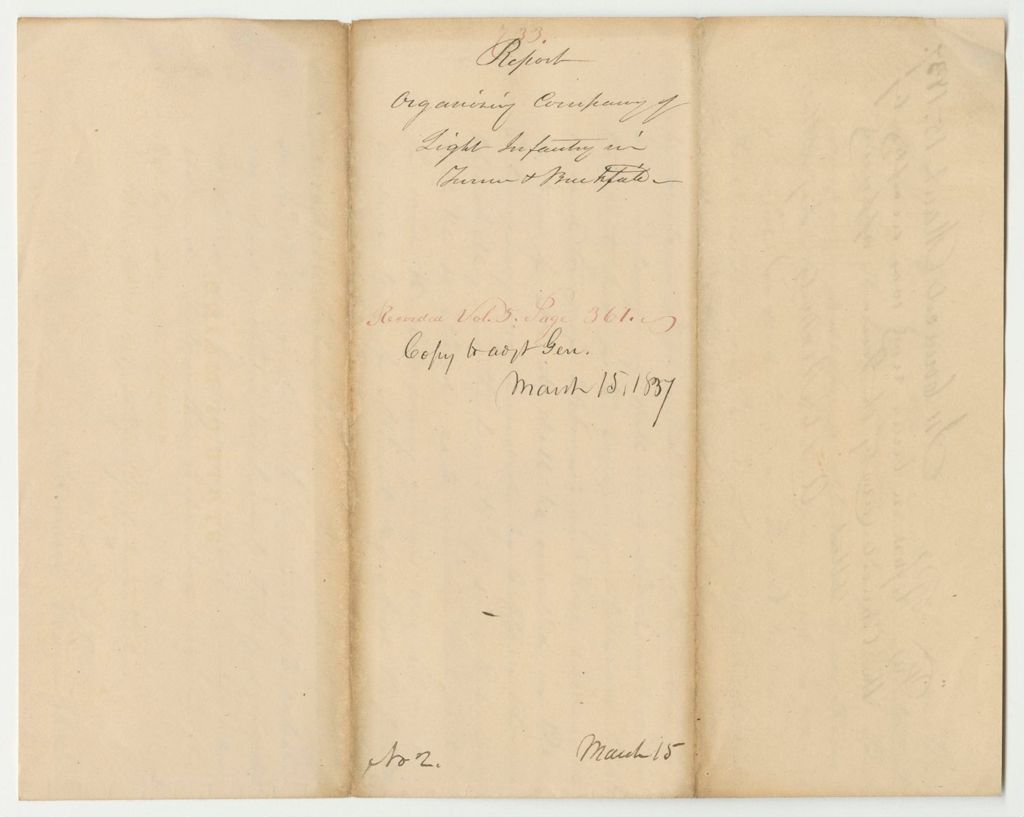 33.
Report
Organising Company of
Light Infantry in
Turner & Buckfield
Recorded Vol. 3. Page 361.
Copy to adjt Gen.
March 15, 1837
No 2.
March 15